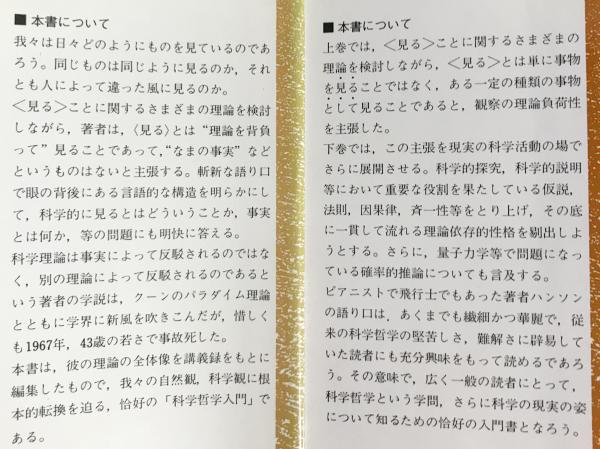 ■ 本書について
我々は日々どのようにものを見ているのであ
ろう。同じものは同じように見るのか，それ
とも人によって違った風に見るのか。
〈見る〉ことに関するさまざまの理論を検討
しながら，著者は，〈見る〉とは“理論を背負
って”見ることであって，“なまの事実”など
というものはないと主張する。斬新な語り口
で眼の背後にある言語的な構造を明らかにし
て，科学的に見るとはどういうことか，事実
とは何か，等の問題にも明快に答える。
科学理論は事実によって反駁されるのではな
く，別の理論によって反駁されるのであると
いう著者の学説は，クーンのパラダイム理論
とともに学界に新風を吹きこんだが，惜しく
も1967年，43歳の若さで事故死した。
本書は，彼の理論の全体像を講義録をもとに
編集したもので，我々の自然観，科学観に根
本的転換を迫る，恰好の「科学哲学入門」で
ある。
■ 本書について
上巻では，〈見る〉ことに関するさまざまの
理論を検討しながら，〈見る〉とは単に事物
を見ることではなく，ある一定の種類の事物
として見ることであると，観察の理論負荷性
を主張した。
下巻では，この主張を現実の科学活動の場で
さらに展開させる。科学的探究，科学的説明
等において重要な役割を果たしている仮説，
法則，因果律，斉一性等をとり上げ，その底
に一貫して流れる理論依存的性格を剔出しよ
うとする。さらに，量子力学等で問題になっ
ている確率的推論についても言及する。
ピアニストで飛行士でもあった著者ハンソン
の語り口は，あくまでも繊細かつ華麗で，従
来の科学哲学の堅苦しさ，難解さに辟易して
いた読者にも充分興味をもって読めるであろ
う。その意味で，広く一般の読者にとって，
科学哲学という学問，さらに科学の現実の姿
について知るための恰好の入門書となろう。